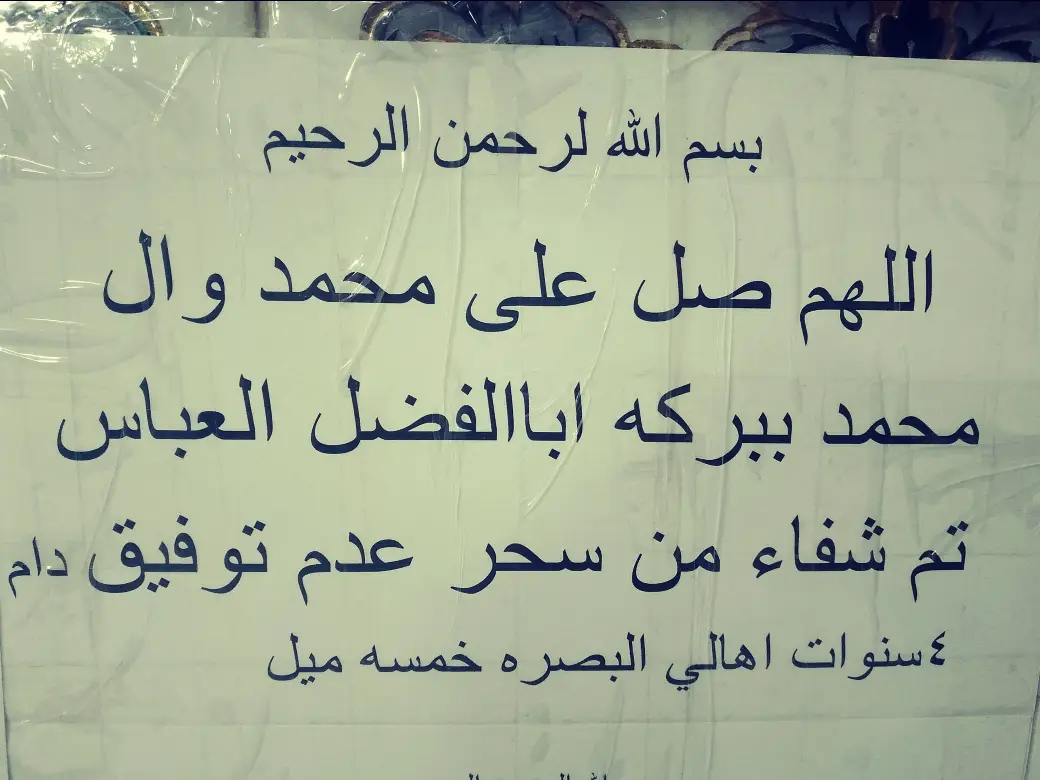 بسم الله لرحمن الرحيم
اللهم صل على محمد وال
محمد ببركه اباالفضل العباس
تم شفاء من سحر عدم توفيق دام
٤سنوات اهالي البصره خمسه ميل